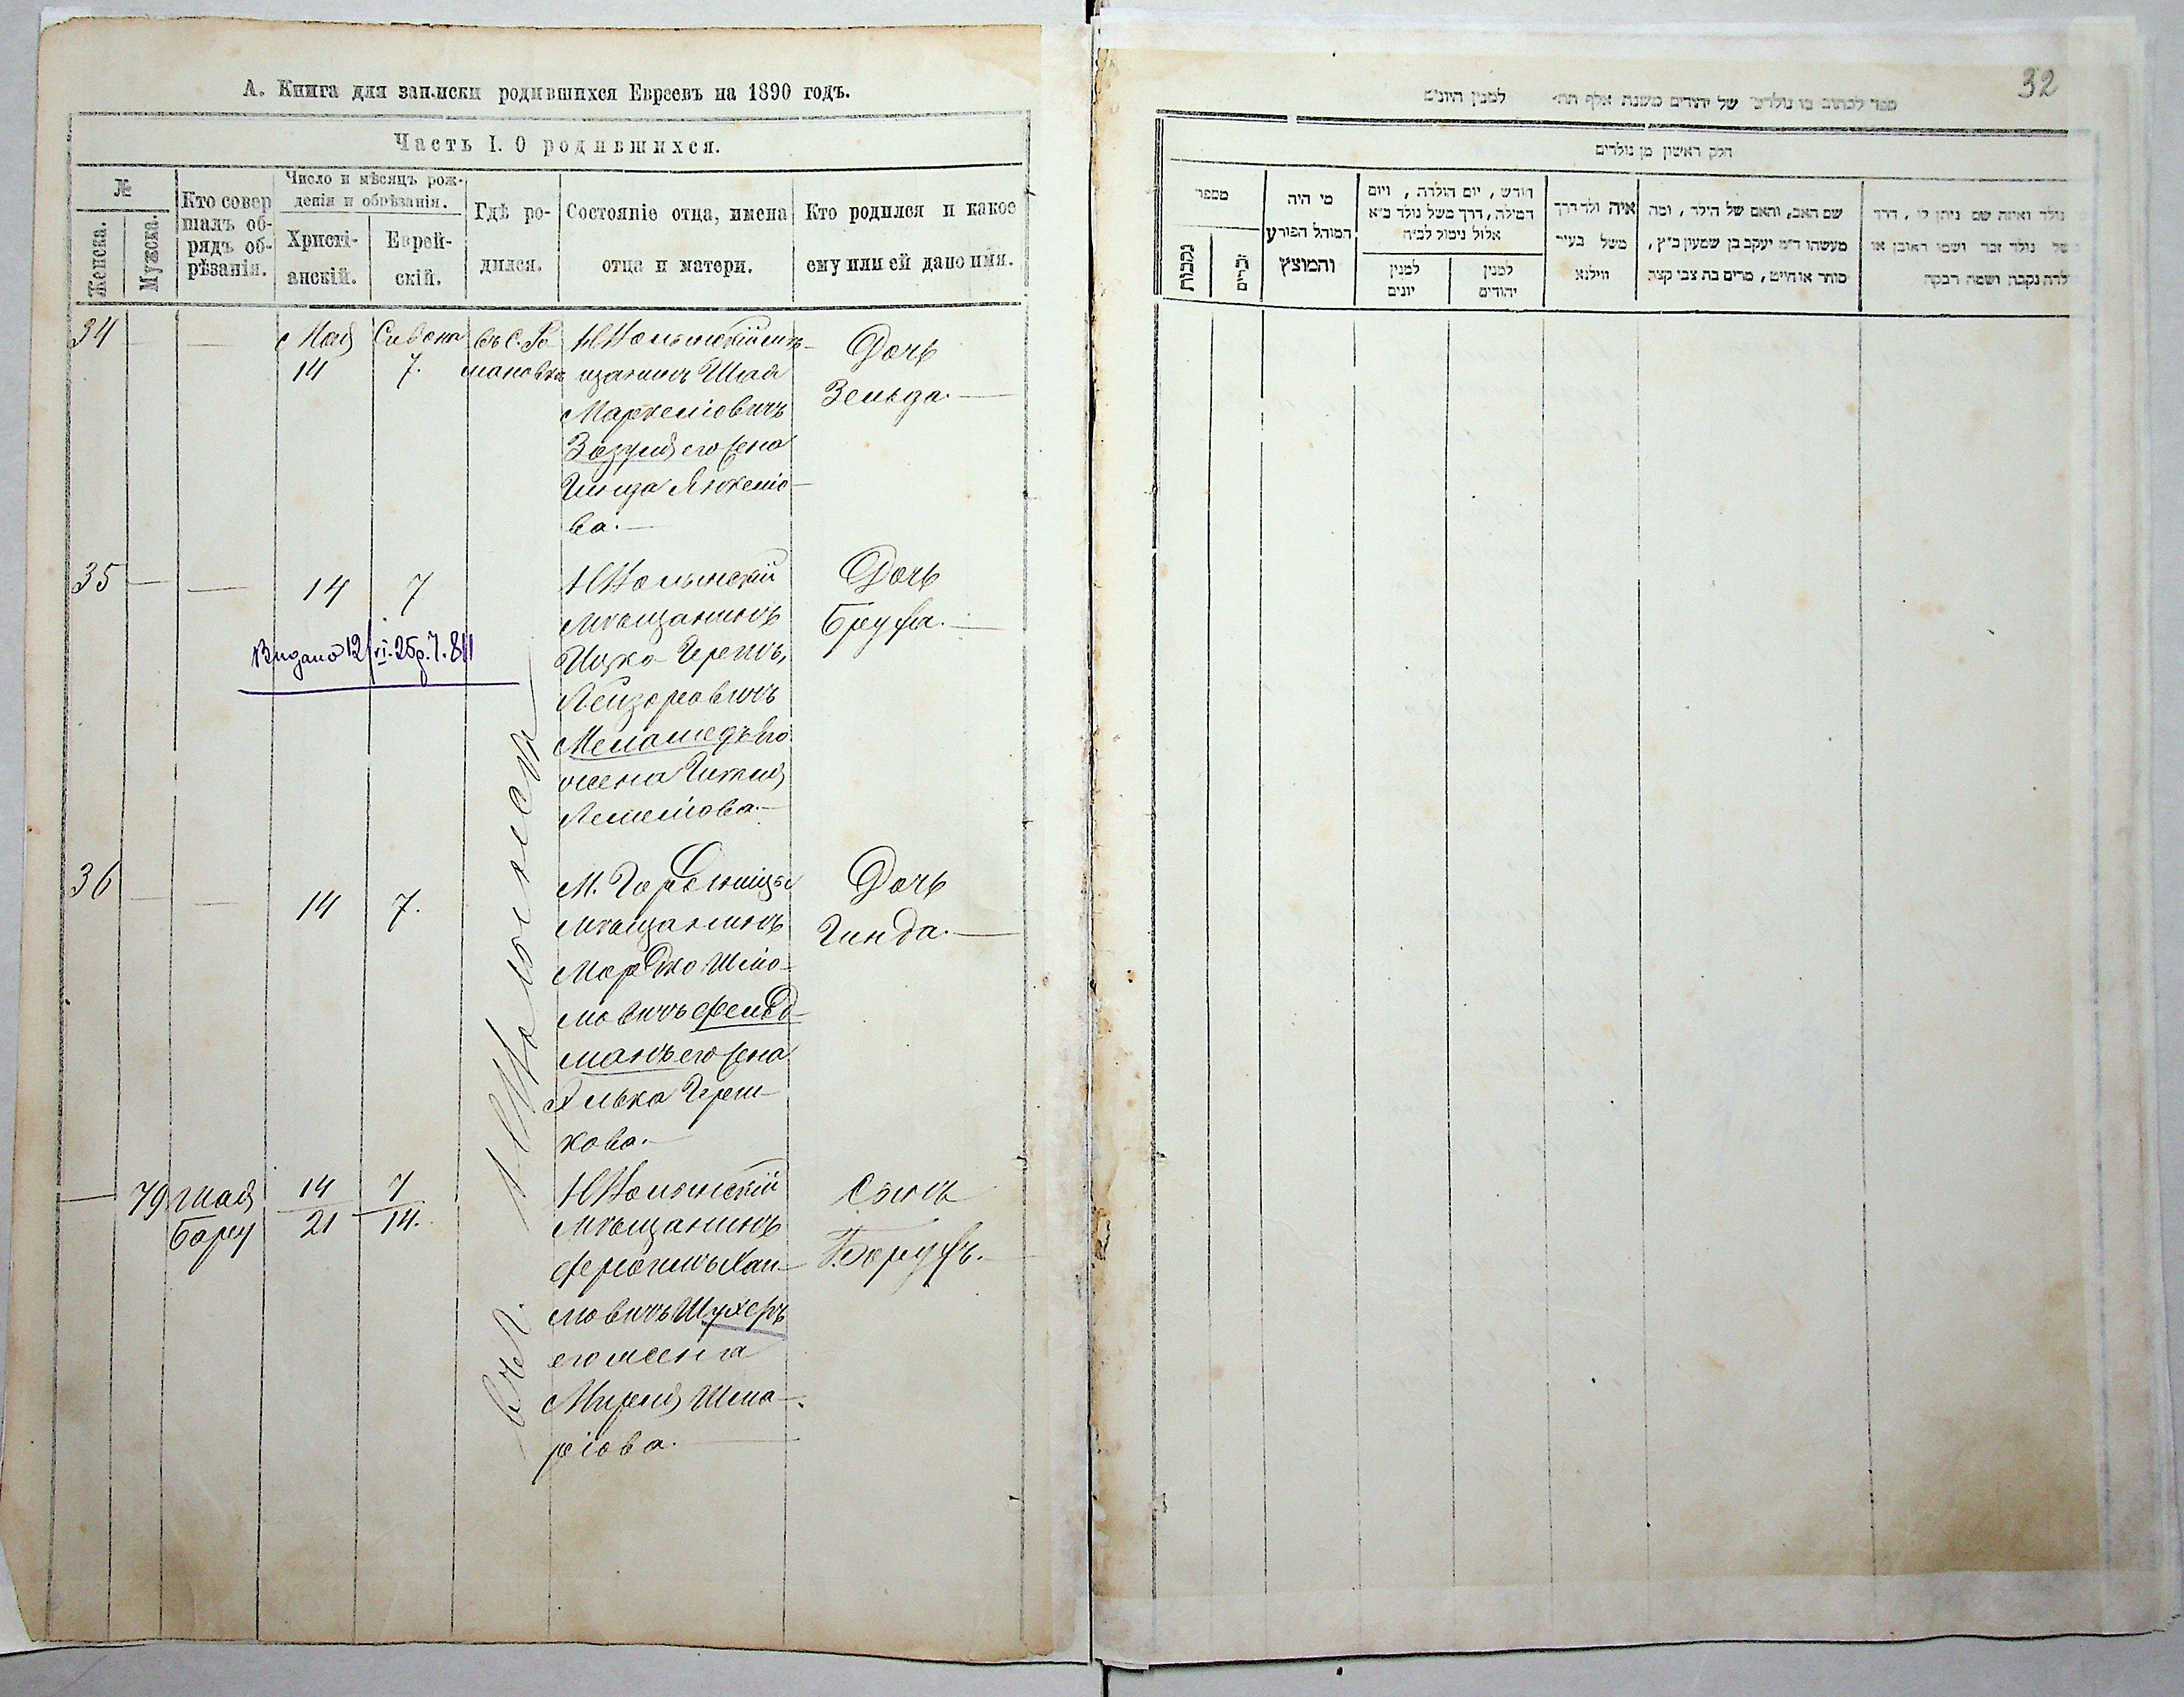 А. Книга для записки родившихся Евреевъ на 1890 годъ.
Часть I. О родившихся.
№
Женска.
Мужска.
Кто совер
шалъ об-
рядъ об-
рѣзанія.
Число и мѣсяцъ рож-
денія и обрѣзанія.
Христі-
анскій.
Еврей-
скій.
Гдѣ ро-
дился.
Состояніе отца, имена
отца и матери.
Кто родился и какое
ему или ей дано имя.
34
Мая
14
Сивона
7.
въ с. Ро
мановкѣ
Н Волынскій мѣ-
щанинъ Шая
Зозуля его жена
ва.
Дочь
Зельда.
35
14
7
Видано 12/VI-25р. 7.811
Н Волынскій
мѣщанинъ
Ицко Гершъ,
Лейзоровичъ
Меламедъ его
жена Гитля
Дочь
Бруха.
36
14
7.
М.
мѣщанинъ
Мордко Шмо-
мовичъ Фельд-
манъ его жена
Герш-
кова.
Дочь
Гинда.
79
Шая
Борух
14
21
7
14.
Н Волынскій
мѣщанинъ
Хаи-
мовичъ Шухеръ
его жена
Миреля Шма-
ріова.
Сынъ
Борухъ.
32
ספר לכתוב בו נולדים של יהודים משנת אלף תת׳ למנין היונים
חלק ראשון מן נולדים
מספר
נקבות
זכרים
מי היה
המוהל הפורע
והמוצץ
חודש, יום הולדת, ויום
המילה, דרך משל נולד כ״א
אלול נימול לכ״ח
למנין
יונים
למנין
יהודים
איה ולד דרך
משל בעיר
ווילנא
שם האב, והאם של הילד, ומה
מעשהו ד״מ יעקב בן שמעון כ״ץ,
סוחר או חייט, מרים בת צבי קצת
נולד ואיזה שם ניתן לו, דרך
משל נולד זכר ושמו ראובן או
ילדה נקבה ושמה רבקה